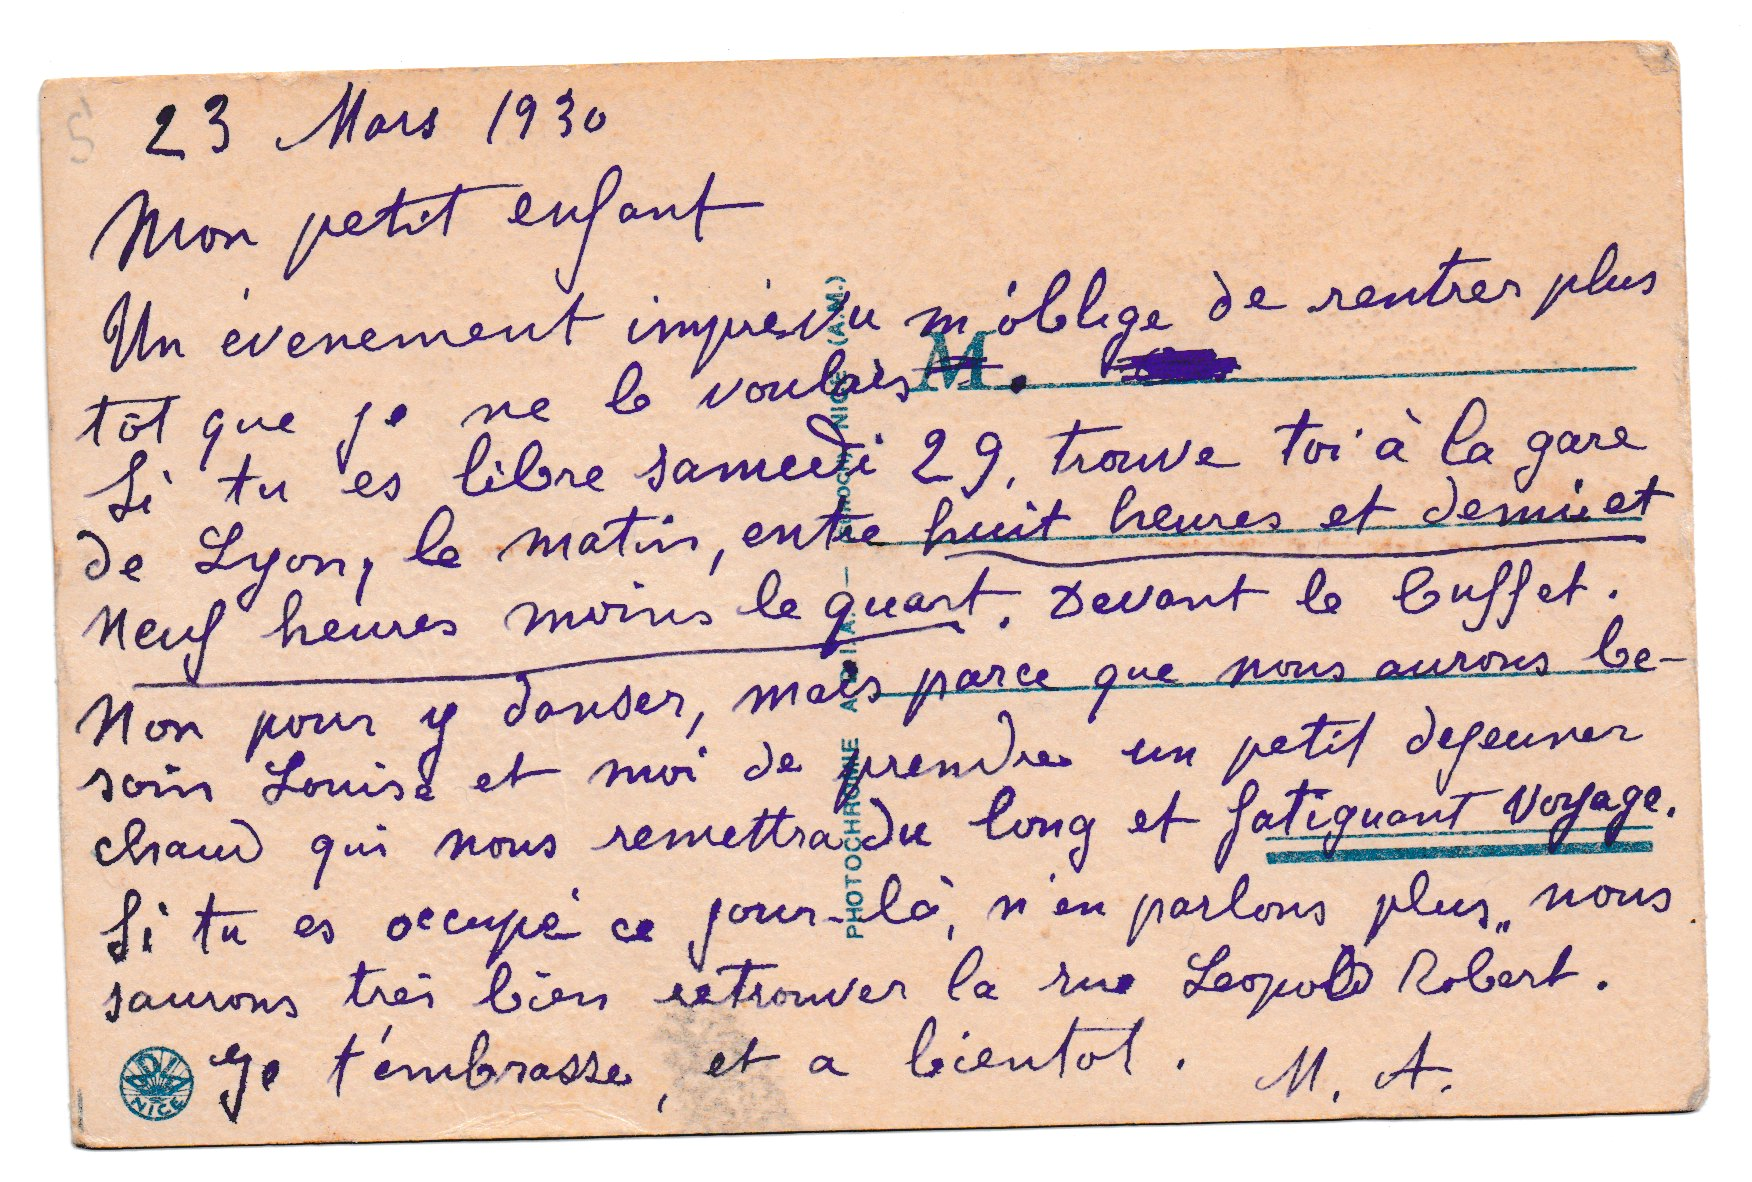 23 Mars 1930
Mon petit enfant
Un évenement imprévu m'oblige de rentrer plus
tôt que je ne le voulais.
Si tu es libre samedi 29, trouve toi à la gare
de Lyon, le matin, entre huit heures et demie et
neuf heures moins le quart. Devant le buffet.
Non pour y danser, mais parce que nous aurons be-
soin Louise et moi de prendre un petit dejeuner
chaud qui nous remettra du long et fatiguant voyage.
Si tu es occupé ce jour-là, n'en parlons plus, nous
saurons très bien retrouver la rue Leopold Robert.
Je t'embrasse, et a bientot. M. A.
M
PHOTOCHROMIE
NICE (A.M.)
ADIA
NICE
5